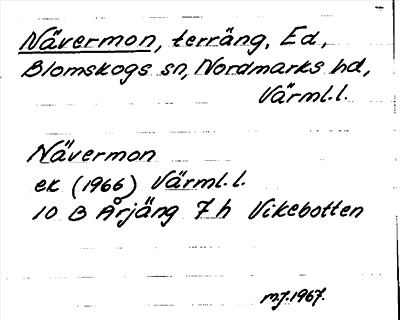 Nävermon, terräng, Ed,
Blomskogs sn, Nordmarks hd,
Värml.l.
Nävermon
ek (1966) Värml.l.
10 B Årjäng 7h Vikebotten
MJ.1967.